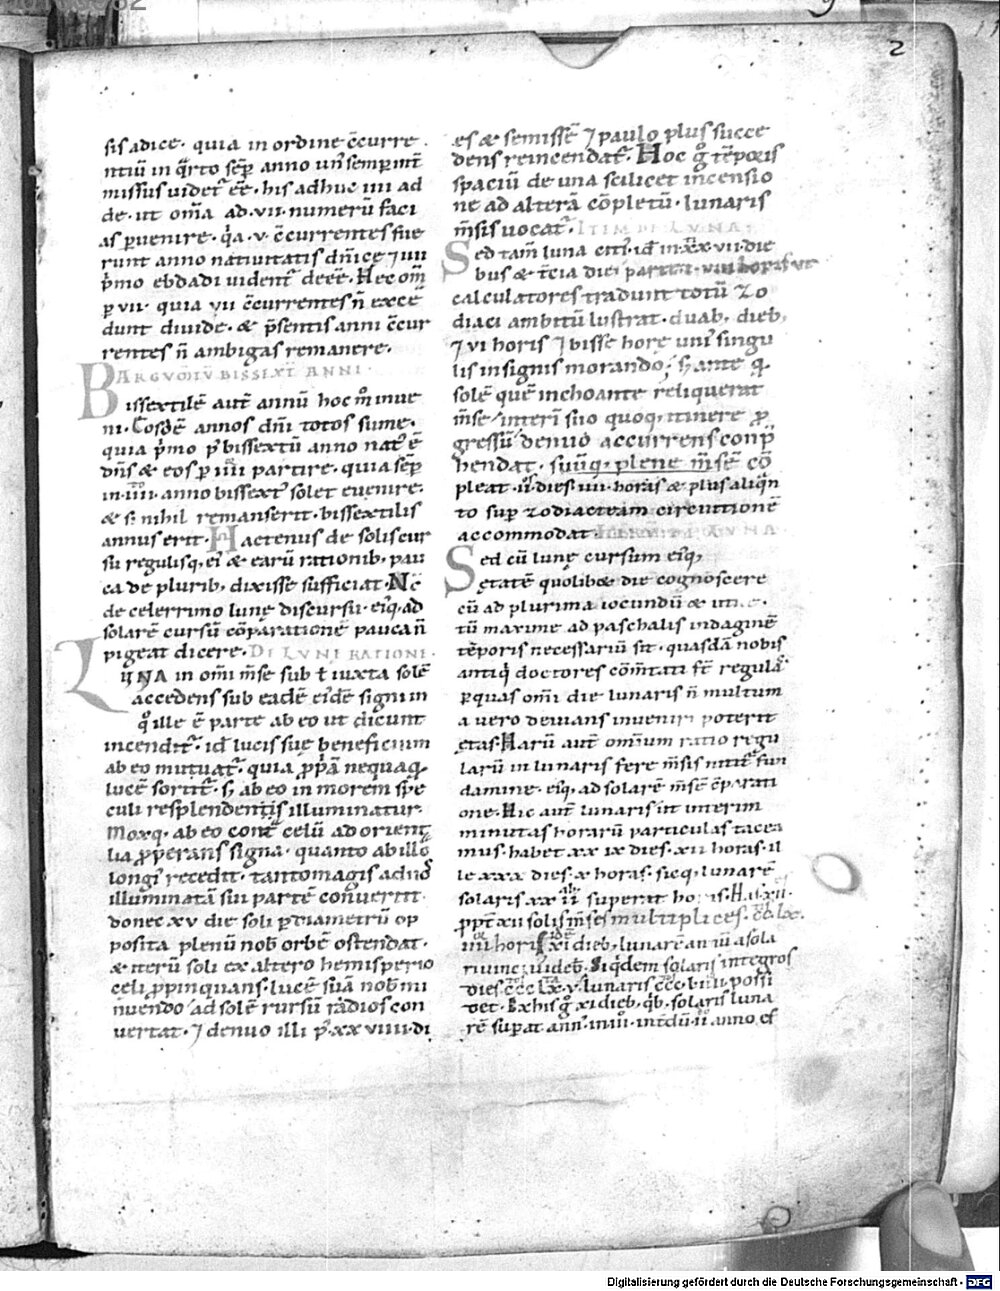 2
sis adice · quia in ordine c̄curre
ntiū in q̄rto sēp anno un' semp int̄
missus uidet' eē · his adhuc iiii ad
de · ut om̄a ad · vii · numerū faci
as ꝑuenire · q̄a · v · c̄currentes fue
runt anno natiuitatis dn̄ice ⁊ iiii
p̄mo ebdadi uident' deeē · Hec om̄
ꝑ vii · quia vii c̄currentes n̄ exce
dunt diuide · & p̄sentis anni c̄cur
rentes n̄ ambigas remanere ·
ARGVM̄TV̄ BISSEXT ANNI ·
Bissextilē aut̄ annū hoc m̄ inue
ni · Eosdē annos dn̄i totos sume ·
quia p̄mo p' bissextū anno nat' ē
dn̄s & eos ꝑ iiii partire · quia sēp
in · iiii · anno bissext' solet euenire ·
& si nihil remanserit · bissextilis
annus erit · Hactenus de solis cur
su regulisq, ei' & earū rationib, pau
ca de plurib, dixisse sufficiat · Nc̄
de celerrimo lune discursu · eiq, ad
solarē cursū cōparatione pauca n̄
pigeat dicere · DE LVNE RATIONE ·
LUNA in om̄i m̄se sub t̄ iuxta solē
accedens sub eadē eidē signi in
q° ille ē parte ab eo ut dicunt
incendit' · id lucis sue beneficium
ab eo mutuat' · quia ꝓp̄ā nequaq,
lucē sortit' · s; ab eo in morem spe
culi resplendentis illuminatur
Moxq, ab eo cont̄ celū ad orient
lia ꝓperans signa · quanto ab illo
longi' recedit · tanto magis ad nos
illuminatā sui partē conuertit ·
donec xv die soli ꝑ diametrū op
posita plenū nob' orbē ostendat ·
& iterū soli ex altero hemisperio
celi ꝓpinquans · lucē suā nob' mi
nuendo ad solē rursū radios con
uertat · ⁊ denuo illi p' · xxviiii · di
es & semissē ⁊ paulo plus succe
dens reincendat' · Hoc ḡ tēporis
spaciū de una scilicet incensio
ne ad alterā cōpletū · lunaris
m̄sis uocat' · ITEM DE LVNA ·
Sed tam̄ luna citi' · id in xxvii · die
bus & t̄cia diei parte · viii horis ut
calculatores tradunt totū zo
diaci ambitū lustrat · duab, dieb,
⁊ vi horis ⁊ bisse hore uni' singu
lis in signis morando · Hante q,
solē quē inchoante reliquerat
m̄se interī suo quoq, itinere ꝓ
gressū denuo accurrens conp̄
hendat · suūq, plene m̄sē cō
pleat · ii · dies iiii · horas & plus aliqn̄
to sup zodiacteam circuitionē
accommodat ·
Sed cū lune cursum eiq,
etatē quolibet die cognoscere
cū ad plurima iocundū &
tū maxime ad paschalis indaginē
tēporis necessariū sit · quasdā nobis
antiq' doctores cōm̄tati s̄t regulas
ꝑ quas om̄i die lunaris n̄ multum
a uero deuians inueniri poterit
etas · Harū aut̄ omnium ratio regu
larū in lunaris fere m̄sis nitit' fun
damine · eiq, ad solarē m̄sē cparati
one · Hic aut̄ lunaris ut interim
minutas horarū particulas tacea
mus · habet xxix dies · xii horas · il
le xxx dies · x horas · sicq, lunarē
solaris
ꝓpt' xii solis m̄ses multiplices ·
iiii horis xi dieb, lunarē an̄ū a sola
ri uinci uideb' · Siq̄dem solaris integros
dies ccc lx v · lunaris ccc · liiii · possi
det · Ex his ḡ xi dieb, q̄b, solaris luna
rē supat ann' · in anno es
Digitalisierung gefördert durch die Deutsche Forschungsgemeinschaft - DFG